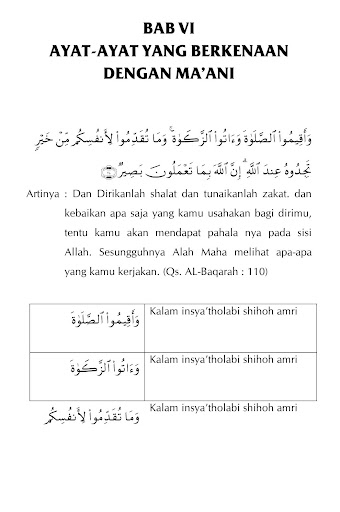 BAB VI
AYAT-AYAT YANG BERKENAAN
DENGAN MA'ANI
وَأَقِيمُوا۟ ٱلصَّلَوٰةَ وَءَاتُوا۟ ٱلزَّكَوٰةَ ۚ وَمَا تُقَدِّمُوا۟ لِأَنفُسِكُم مِّنْ خَيْرٍ
تَجِدُوهُ عِندَ ٱللَّهِ ۗ إِنَّ ٱللَّهَ بِمَا تَعْمَلُونَ بَصِيرٌ
Artinya : Dan Dirikanlah shalat dan tunaikanlah zakat. dan
kebaikan apa saja yang kamu usahakan bagi dirimu,
tentu kamu akan mendapat pahala nya pada sisi
Allah. Sesungguhnya Alah Maha melihat apa-apa
yang kamu kerjakan. (Qs. AL-Baqarah : 110)
وَأَقِيمُوا۟ ٱلصَّلَوٰةَ Kalam insya'tholabi shihoh amri
وَءَاتُوا۟ ٱلزَّكَوٰةَ Kalam insya'tholabi shihoh amri
وَمَا تُقَدِّمُوا۟ لِأَنفُسِكُم Kalam insya'tholabi shihoh amri